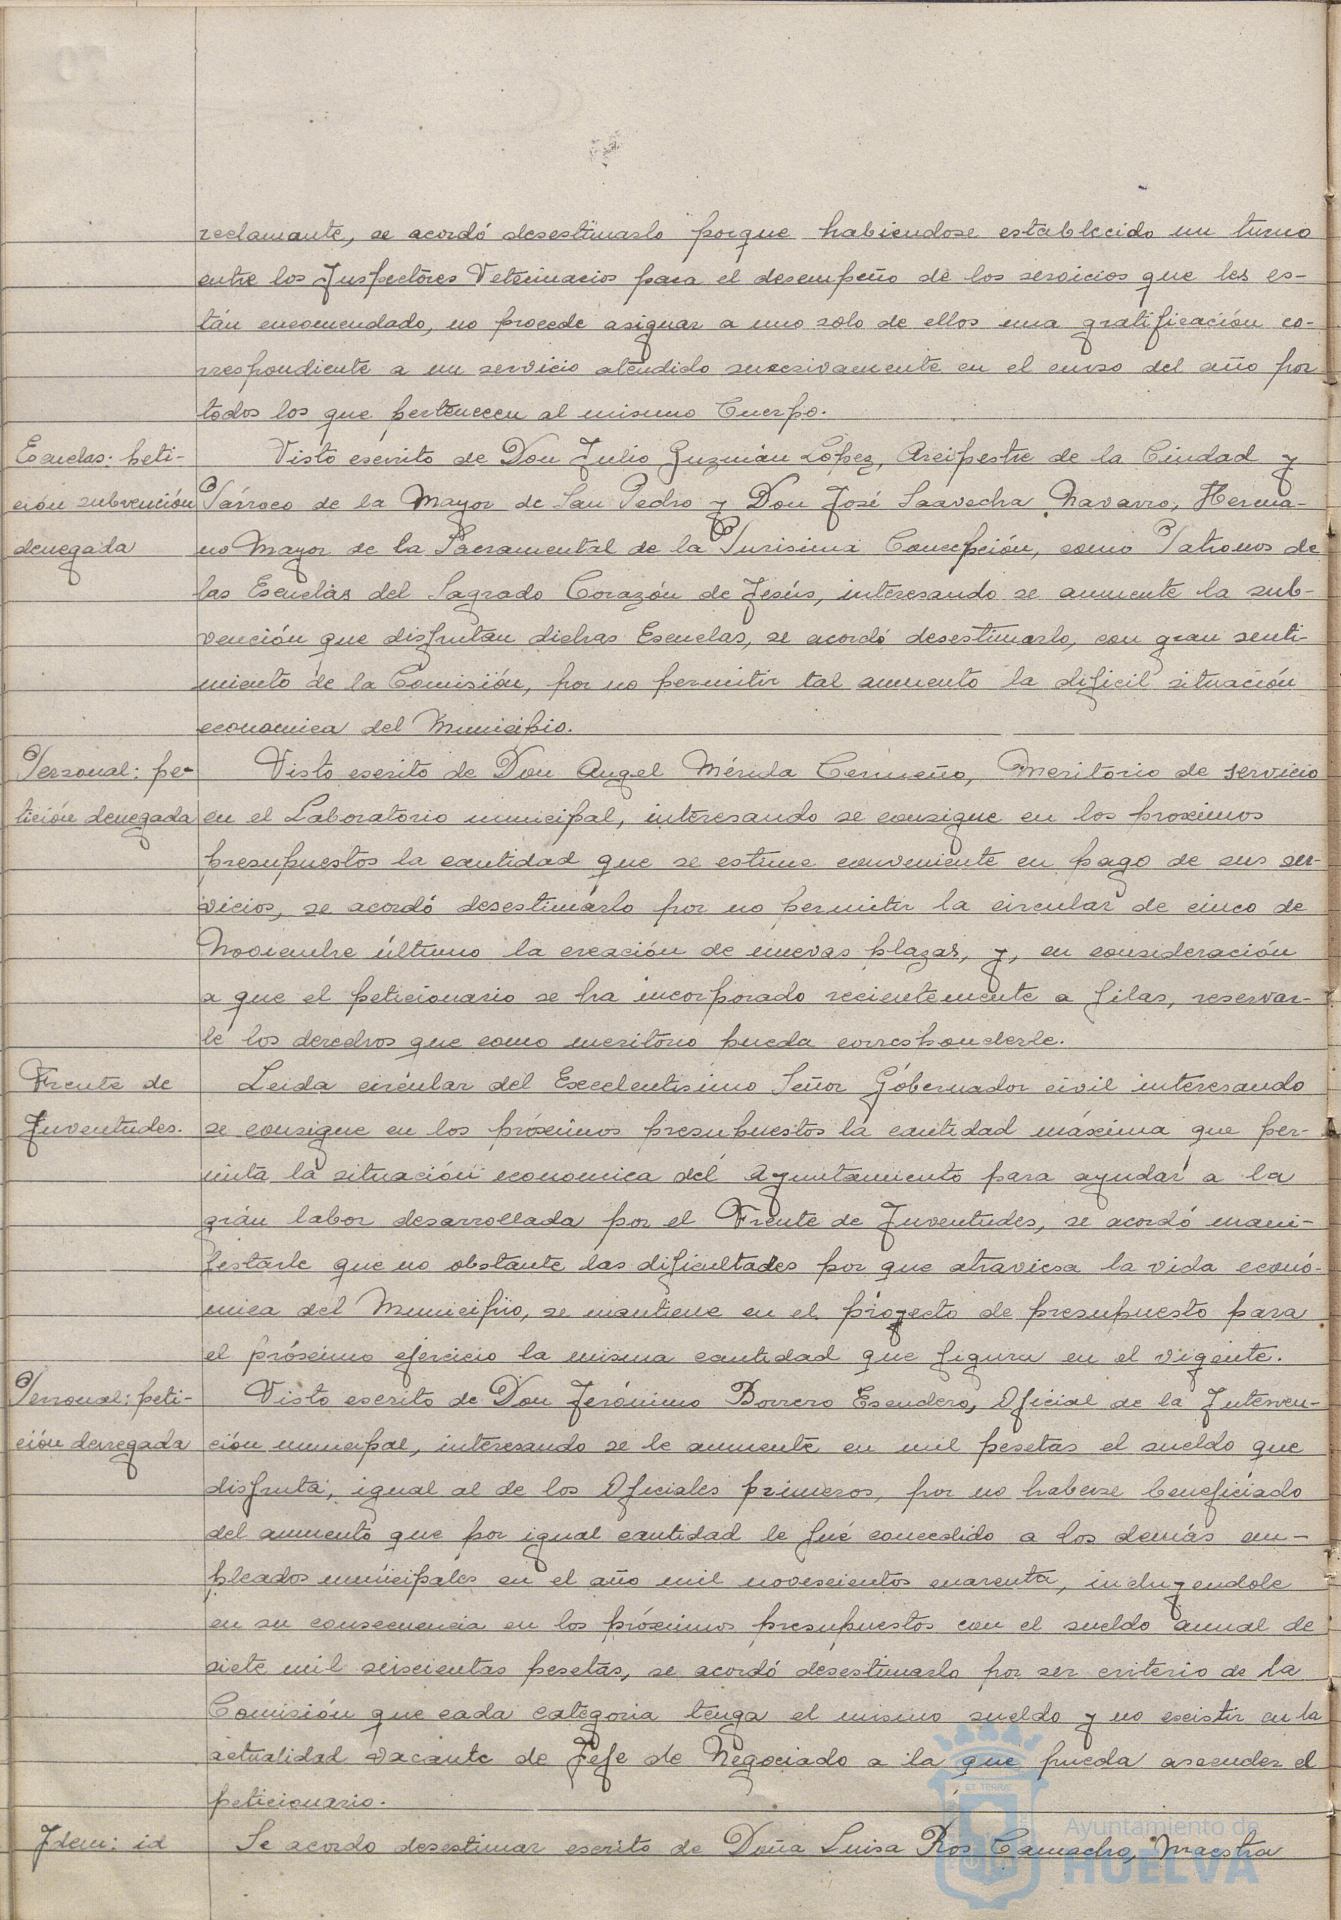 reclamante, se acordó desestimarlo porque habiendose establecido un turno
entre los Inspectores Veterinarios para el desempeño de los servicios que les es-
tán encomendado, no procede asignar a uno solo de ellos una gratificación co-
rrespondiente a un servicio atendido sucesivamente en el curso del año por
todos los que pertenecen al mismo Cuerpo.
Escuelas: peti-
ción subvención
denegada
Visto escrito de Don Julio Guzmán López, Arcipestre de la Ciudad y
Párroco de la Mayor de San Pedro y Don José Saavedra Navarro, Herma-
no Mayor de la Sacramental de la Purisima Concepción, como Patronos de
las Escuelas del Sagrado Corazón de Jesús, interesando se aumente la sub-
vención que disfrutan dichas Escuelas, se acordó desestimarlo, con gran senti-
miento de la Comisión, por no permitir tal aumento la dificil situación
economica del Municipio.
Personal: pe-
tición denegada
Visto escrito de Don Angel Mérida Cermeño, Meritorio de servicio
en el Laboratorio municipal, interesando se consigne en los proximos
presupuestos la cantidad que se estime conveniente en pago de sus ser-
vicios, se acordó desestimarlo por no permitir la circular de cinco de
Noviembre último la creación de nuevas plazas, y, en consideración
a que el peticionario se ha incorporado recientemente a filas, reservar-
le los derechos que como meritorio pueda corresponderle.
Frente de
Juventudes.
Leida circular del Excelentisimo Señor Gobernador civil interesando
se consigne en los próximos presupuestos la cantidad máxima que per-
mita la situación economica del Ayuntamiento para ayudar a la
gran labor desarrollada por el Frente de Juventudes, se acordó mani-
festarle que no obstante las dificultades por que atraviesa la vida econó-
mica del Municipio, se mantiene en el proyecto de presupuesto para
el próximo ejercicio la misma cantidad que figura en el vigente.
Personal: peti-
ción denegada
Visto escrito de Don Jerónimo Borrero Escudero, Oficial de la Interven-
ción municipal, interesando se le aumente en mil pesetas el sueldo que
disfruta, igual al de los Oficiales primeros, por no haberse beneficiado
del aumento que por igual cantidad le fué concedido a los demás em-
pleados municipales en el año mil novescientos cuarenta, incluyendole
en su consecuencia en los próximos presupuestos con el sueldo anual de
siete mil seiscientas pesetas, se acordó desestimarlo por ser criterio de la
Comisión que cada categoria tenga el mismo sueldo y no existir en la
actualidad vacante de Jefe de Negociado a la que pueda ascender el
peticionario.
Idem: id
Se acordo desestimar escrito de Doña Luisa Ros Camacho, Maestra
ET TERRÆ
Ayuntamiento de
HUELVA